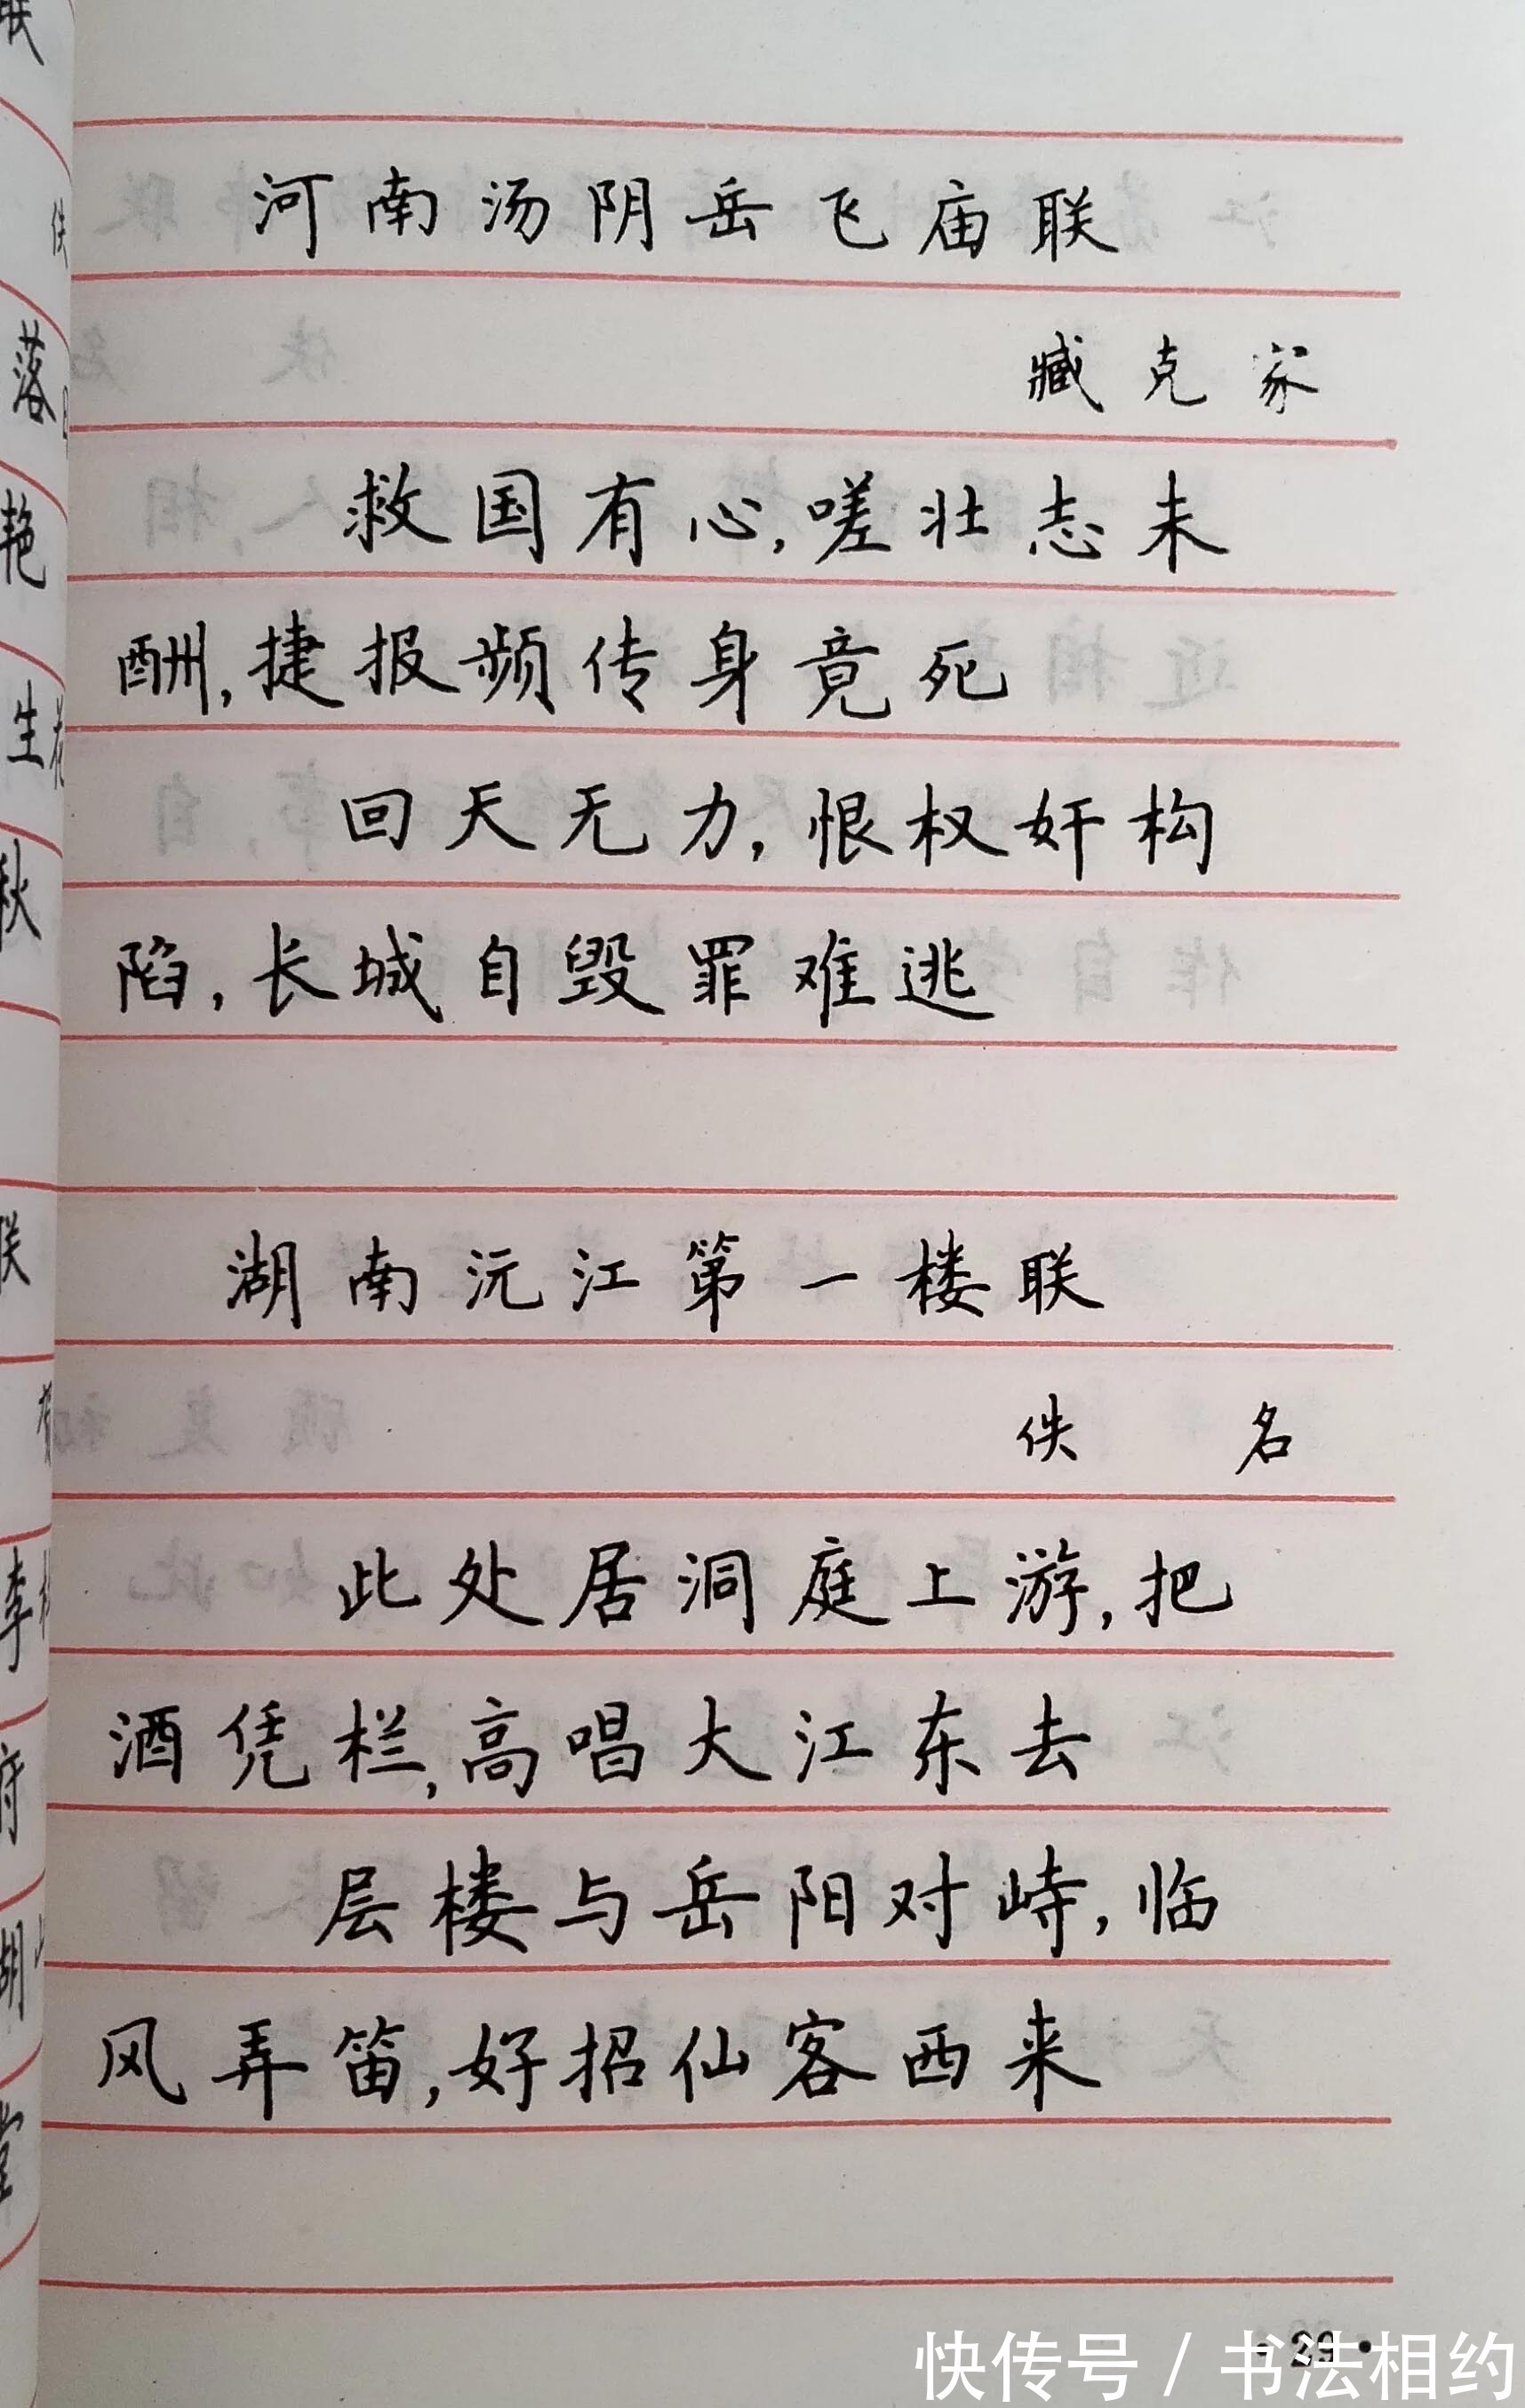 河南汤阴岳飞庙联
臧克家
救国有心,嗟壮志未
酬,捷报频传身竟死
回天无力,恨权奸构
陷,长城自毁罪难逃
湖南沅江第一楼联
佚名
此处居洞庭上游,把
酒凭栏,高唱大江东去
层楼与岳阳对峙,临
风弄笛,好招仙客西来
·29·
快传号/书法相约